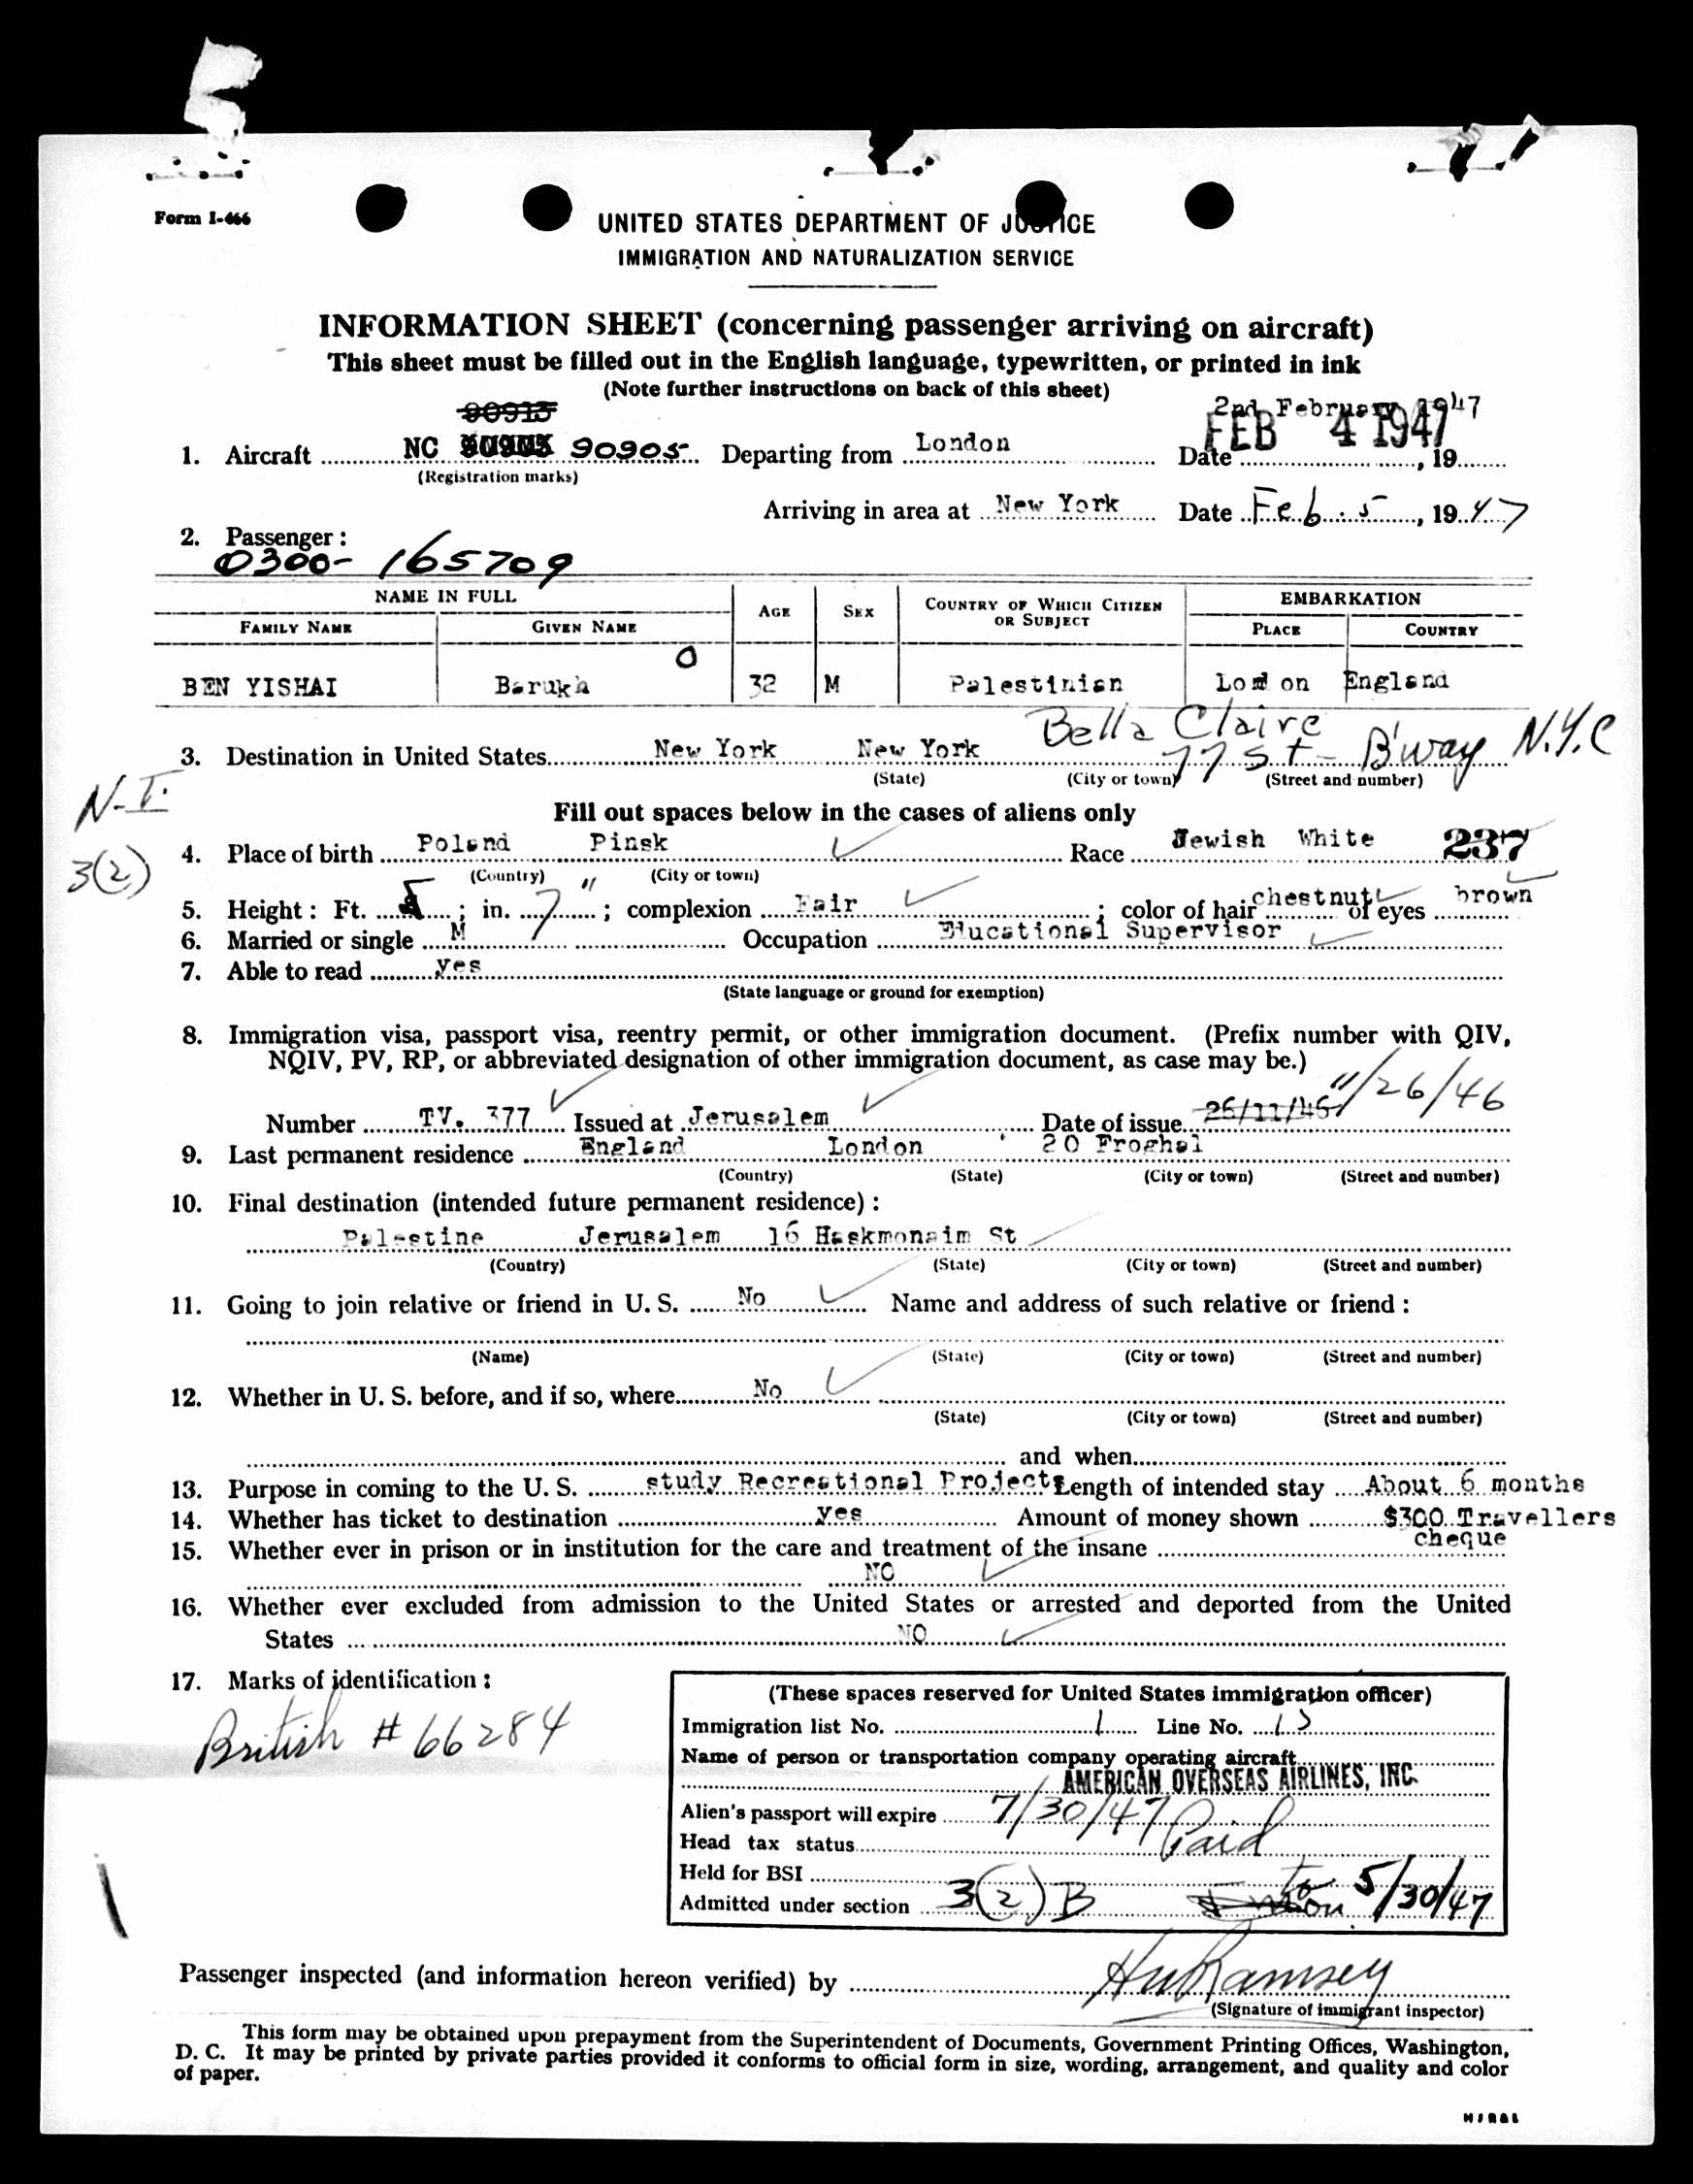 Form I-466
UNITED STATES DEPARTMENT OF JUSTICE
IMMIGRATION AND NATURALIZATION SERVICE
INFORMATION SHEET (concerning passenger arriving on aircraft)
This sheet must be filled out in the English language, typewritten, or printed in ink
(Note further instructions on back of this sheet)
90913
2nd February 1947
FEB 4 1947
1. Aircraft NC 90905 Departing from London Date , 19
(Registration marks)
Arriving in area at New York Date Feb. 5, 1947
2. Passenger :
0300- 165709
NAME IN FULL AGE SEX COUNTRY OF WHICH CITIZEN OR SUBJECT EMBARKATION
FAMILY NAME GIVEN NAME PLACE COUNTRY
O
BEN YISHAI Barukh 32 M Palestinian London England
Bella Claire
3. Destination in United States New York New York 77 St - B'way N.Y.C
(State) (City or town) (Street and number)
N-I.
Fill out spaces below in the cases of aliens only
3(2)
4. Place of birth Poland Pinsk Race Jewish White 237
(Country) (City or town)
5. Height : Ft. 5 ; in. 7" ; complexion Fair ; color of hair chestnut of eyes brown
6. Married or single M Occupation Educational Supervisor
7. Able to read yes
(State language or ground for exemption)
8. Immigration visa, passport visa, reentry permit, or other immigration document. (Prefix number with QIV,
NQIV, PV, RP, or abbreviated designation of other immigration document, as case may be.)
11/26/46
Number TV. 377 Issued at Jerusalem Date of issue 26/11/46
9. Last permanent residence England London 20 Froghal
(Country) (State) (City or town) (Street and number)
10. Final destination (intended future permanent residence) :
Palestine Jerusalem 16 Haskmonaim St
(Country) (State) (City or town) (Street and number)
11. Going to join relative or friend in U. S. No Name and address of such relative or friend :
(Name) (State) (City or town) (Street and number)
12. Whether in U. S. before, and if so, where No
(State) (City or town) (Street and number)
and when
13. Purpose in coming to the U. S. study Recreational Projects Length of intended stay About 6 months
14. Whether has ticket to destination yes Amount of money shown $300 Travellers
cheque
15. Whether ever in prison or in institution for the care and treatment of the insane
NO
16. Whether ever excluded from admission to the United States or arrested and deported from the United
States NO
17. Marks of identification :
British # 66284
(These spaces reserved for United States immigration officer)
Immigration list No. 1 Line No.
Name of person or transportation company operating aircraft
AMERICAN OVERSEAS AIRLINES, INC.
Alien's passport will expire 7/30/47
Head tax status Paid
Held for BSI
Admitted under section 3(2) B to 5/30/47
Passenger inspected (and information hereon verified) by Ramsey
(Signature of immigrant inspector)
This form may be obtained upon prepayment from the Superintendent of Documents, Government Printing Offices, Washington,
D. C. It may be printed by private parties provided it conforms to official form in size, wording, arrangement, and quality and color
of paper.